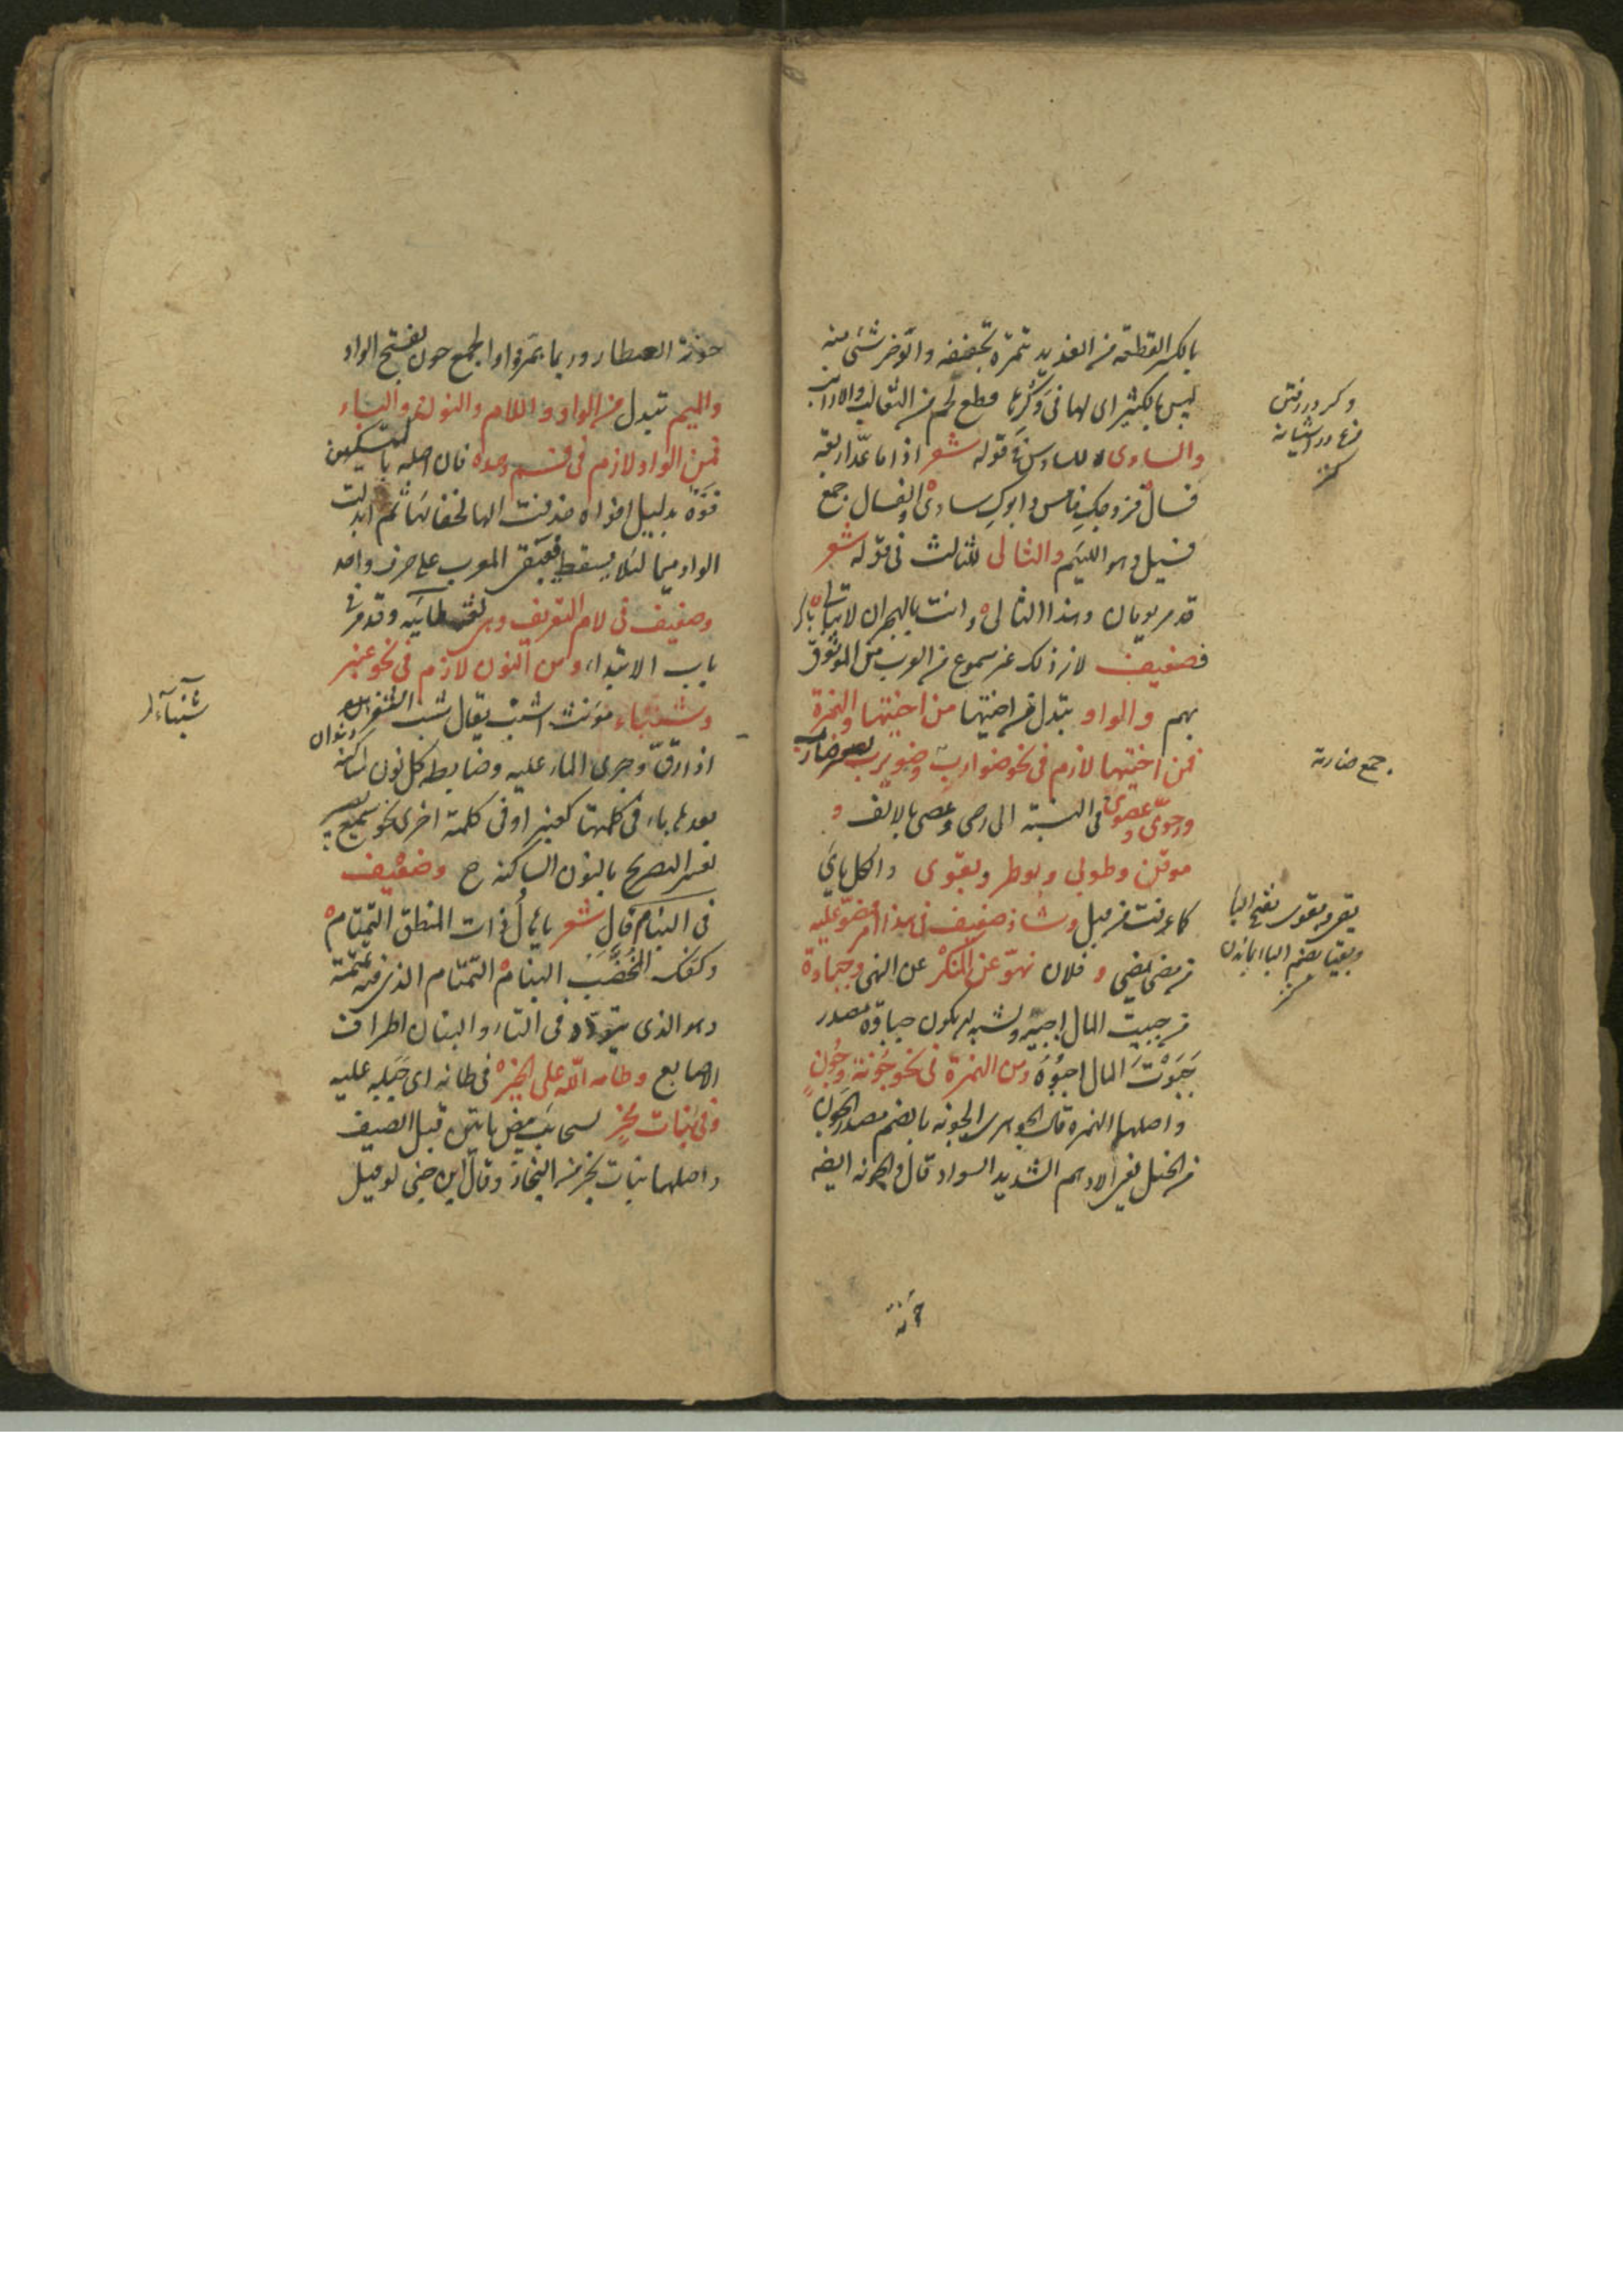 بالكسر القطعة من القديد تتمره تجففه والوخز شئ منه
ليس بالكثير اى لها فى وكرها قطع لحم من الثعالب والارانب
والسادى للسادس فى قوله شعر اذا ما عد اربعة
فسال فزوجك خامس وابوك سادى والفسال جمع
فسيل وهو اللئيم والثالى للثالث فى قوله شعر
قد مر يومان وهذا الثالى وانت بالهجران لا تبالى
فضعيف لان ذلك غير مسموع من العرب من الموثوق
بهم والواو تبدل من اختيها من اختيها والهمزة
فمن اختيها لازم فى نحو ضوارب وضويرب
ورحوى وعصوى فى النسبة الى رحى وعصى بالالف و
موقن وطوبى وبوطر وبقوى والكل
كما عرفت من قبل وشاذ ضعيف فى هذا امر ممضو عليه
من مضى يمضى و فلان نهو عن المنكر عن النهى وجباوة
من جبيت المال اجبيه ويشبه ان يكون جباوة مصدر
جبوت المال اجبوه ومن الهمزة فى نحو جونة وجون
واصلها الهمزة قال الجوهرى الجونه بالضم مصدر الجون
من الخيل يعنى الادهم الشديد السواد قال والجونه ايضا
جمع ضاربة
جونة
جونة العطار وربما همزوا والجمع جون بفتح الواو
والميم تبدل من الواو واللام والنون والباء
فمن الواو لازم فى فم وحده فان اصله بالتسكين
فوه بدليل افواه حذفت الها لخفائها ثم ابدلت
الواو ميما لئلا يسقط فيبقى المعرب على حرف واحد
وضعيف فى لام التعريف وهى لغة طائيه وقد مر فى
باب الابتداء ومن النون لازم فى نحو عنبر
وشنباء مؤنث اشنب يقال شنب الثغر
اذا رق وجرى الماء عليه وضابطه كل نون ساكنة
بعدها باء فى كلمتها كعنبر او فى كلمة اخرى نحو سميع بصير
لعسر التصريح بالنون الساكنة ح وضعيف
فى البنام قال شعر يا هال ذات المنطق التمتام
وكفك المخضب البنام التمتام الذى فيه تمتمة
وهو الذى يتردد فى التاء والبنان اطراف
الاصابع وطامه الله على الخير فى طانه اى جبله عليه
وفى بنات مخر لسحايب بيض ياتين قبل الصيف
واصلها بنات بخر من البخار وقال ابن جنى لو قيل
شنباء